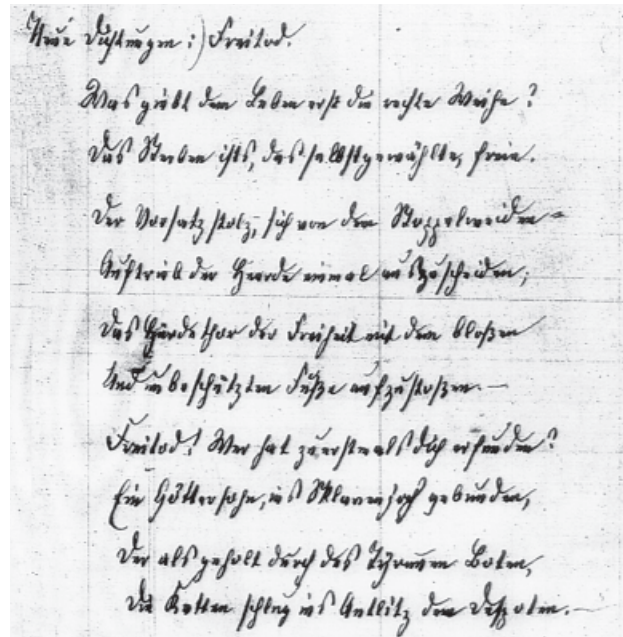 Neue Dichtungen:) Freitod.
Was giebt dem Leben erst die rechte Weihe?
Das Sterben ists, das selbstgewählte, freie.
Der Vorsatz stolz, sich von dem Stoppelweiden-
Auftrieb der Heerde einmal auszuscheiden;
Das Hürdethor der Freiheit mit dem bloßen
Und unbeschützten Fuße aufzustoßen. —
Freitod! Wer hat zuerst als dich erfunden?
Ein Göttersohn, ins Sklavenjoch gebunden,
Der als geholt durch des Tyrannen Boten,
Die Ketten schlug ins Antlitz dem Despoten. —